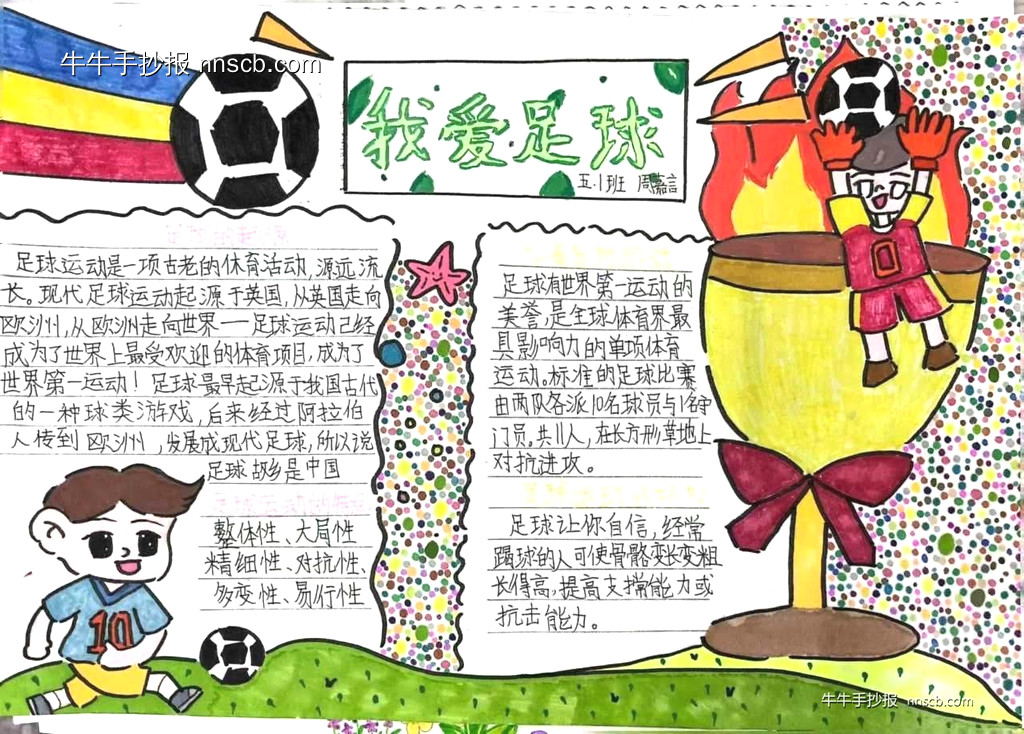 牛牛手抄报 nnscb.com
我爱足球
五.1班 周嘉言
足球运动是一项古老的休育活动,源远流
长。现代足球运动起源于英国,从英国走向
欧洲,从欧洲走向世界——足球运动已经
成为了世界上最受欢迎的体育项目,成为了
世界第一运动!足球最早起源于我国古代
的一种球类游戏,后来经过阿拉伯
人传到欧洲,发展成现代足球,所以说
足球故乡是中国
整体性、大局性
精细性、对抗性、
多变性、易行性
10
足球有世界第一运动的
美誉,是全球体育界最
具影响力的单项体育
运动。标准的足球比赛
由两队各派10名球员与1名守
门员。共11人,在长方形草地上
对抗进攻。
足球让你自信,经常
踢球的人可使骨骼变长变粗
长得高,提高支撑能力或
抗击能力。
0
牛牛手抄报 nnscb.com